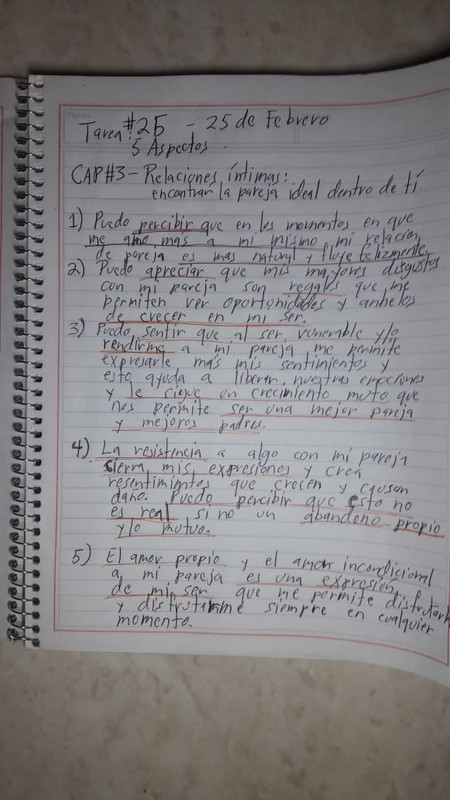 Tarea #25 - 25 de Febrero
5 Aspectos.
CAP#3 - Relaciones íntimas:
encontrar la pareja ideal dentro de tí
1) Puedo percibir que en los momentos en que
me amo mas a mi mismo, mi relacion
de pareja es mas natural y fluye felizmente.
2) Puedo apreciar que mis mayores disgustos
con mi pareja son regalos que me
permiten ver oportunidades y anhelos
de crecer en mi ser.
3) Puedo sentir que al ser vunerable y/o
rendirme a mi pareja me permite
expresarle mas mis sentimientos y
esto ayuda a liberar nuestras emociones
y le sigue un crecimiento muto que
nos permite ser una mejor pareja
y mejores padres.
4) La resistencia a algo con mi pareja
sierra mis expresiones y crea
resentimientos que crecen y causan
daño. Puedo percibir que esto no
es real si no un abandono propio
y/o mutuo.
5) El amor propio y el amor incondicional
a mi pareja es una expresión
de mi ser que me permite disfrutarla
y disfrutarme siempre en cualquier
momento.